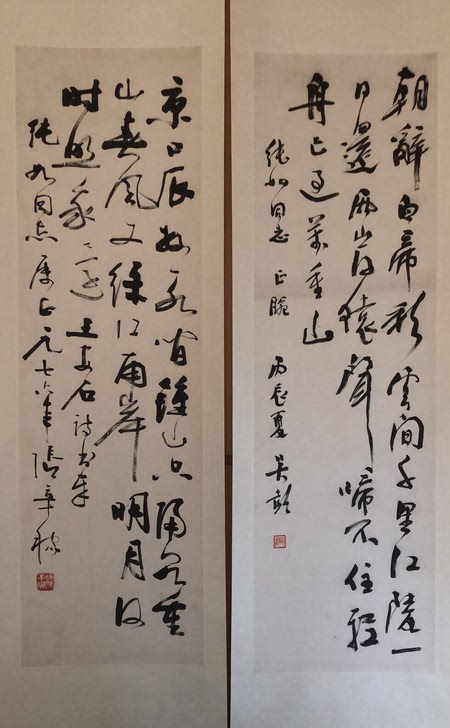 朝辭白帝彩雲間千里江陵一
日還兩岸猿聲啼不住輕
舟已過萬重山
純如同志 正腕 丙辰夏 吴彭
京口瓜洲一水間鍾山只隔数重
山春風又綠江南岸明月何
时照我還 王安石詩書奉
純如同志属正一九七六年張辛稼